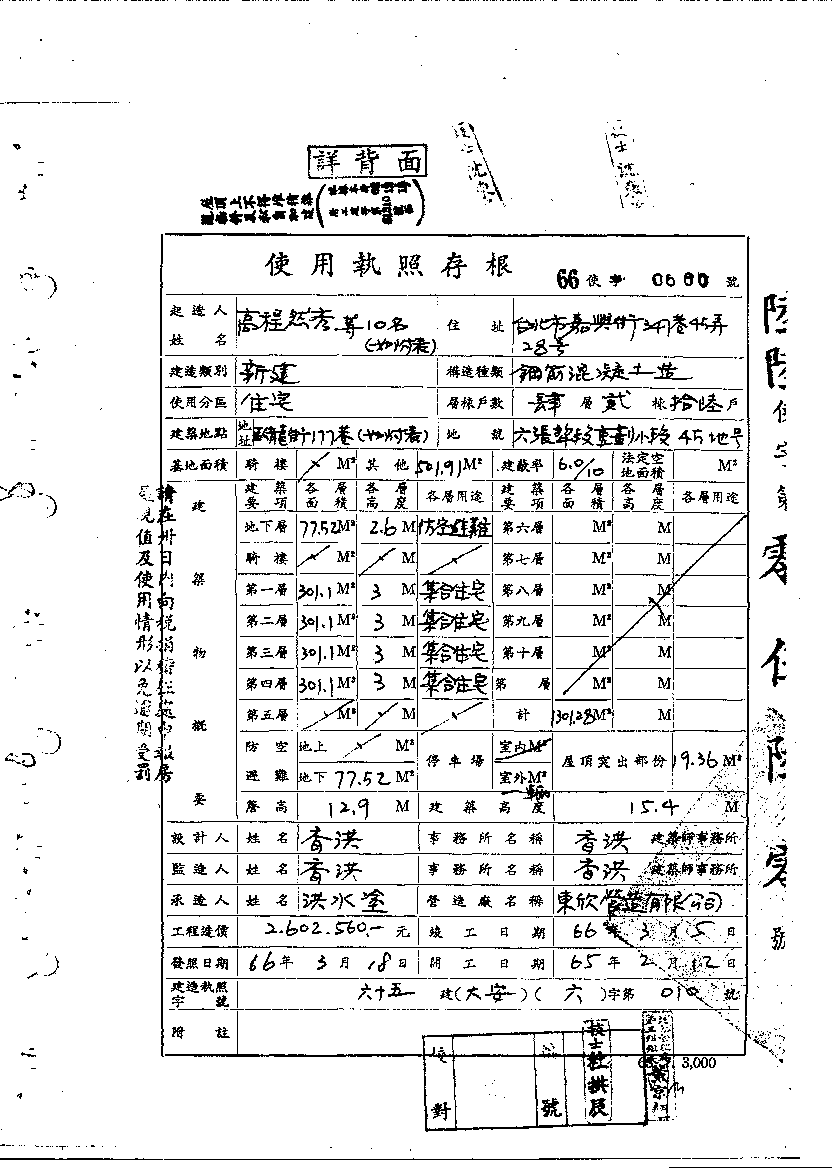 詳背面
使用執照存根
66使字 0660 號
起造人姓名 高程然秀等10名(如附表) 住址 台北市嘉興街347巷45弄28号
建造類別 新建 構造種類 鋼筋混凝土造
使用分區 住宅 層棟戶數 肆層貳棟拾陸戶
建築地點 地址 臥龍街177巷(如附表) 地號 六張犂段 小段45地号
基地面積 騎樓 M² 其他 501.91M² 建蔽率 6.0/10 法定空地面積 M²
建築物概要
建築要項 各層面積 各層高度 各層用途 建築要項 各層面積 各層高度 各層用途
地下層 77.52M² 2.6 M 防空避難 第六層 M² M
騎樓 M² M 第七層 M² M
第一層 301.1M² 3 M 集合住宅 第八層 M² M
第二層 301.1M² 3 M 集合住宅 第九層 M² M
第三層 301.1M² 3 M 集合住宅 第十層 M² M
第四層 301.1M² 3 M 集合住宅 第 層 M² M
第五層 M² M 計 1301.28M² M
防空避難 地上 M² 停車場 室內M² 屋頂突出部份 19.36M²
地下 77.52 M² 室外M²
簷高 12.9 M 建築高度 15.4 M
設計人 姓名 香洪 事務所名稱 香洪 建築師事務所
監造人 姓名 香洪 事務所名稱 香洪 建築師事務所
承造人 姓名 洪水塗 營造廠名稱 東欣營造有限公司
工程造價 2.602.560.- 元 竣工日期 66年3月5日
發照日期 66年3月18日 開工日期 65年2月12日
建造執照字號 六十五建(大安)(六)字第010號
附註
3,000
核對
號
請在卅日內向稅捐稽征處申報房
屋現值及使用情形以免逾期受罰
陸陸使字第零
號